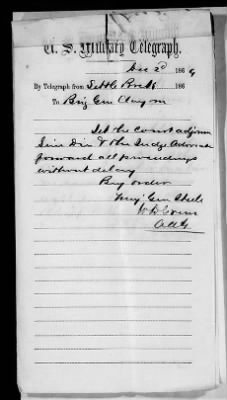 U. S. Military Telegraph.
Dec 2d 1864
By Telegraph from Little Rock 186
To Brig Gen Clayton
Let the court adjourn
Sine Die & the Judge Advocate
forward all proceedings
without delay
By order
Maj Gen Steele
AAG